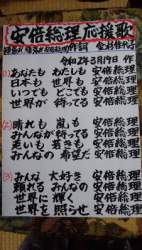 安倍総理応援歌
令和2年3月19日 作
(1) あなたも わたしも 安倍総理
日本も 世界も 安倍総理
いつでも どこでも 安倍総理
世界が 待ってる 安倍総理
(2) 晴れも 嵐も 安倍総理
みんなが待ってる 安倍総理
老いも 若きも 安倍総理
みんなの 希望だ 安倍総理
(3) みんな 大好き 安倍総理
頼れる みんなの 安倍総理
世界に 輝く 安倍総理
世界を 照らせ 安倍総理